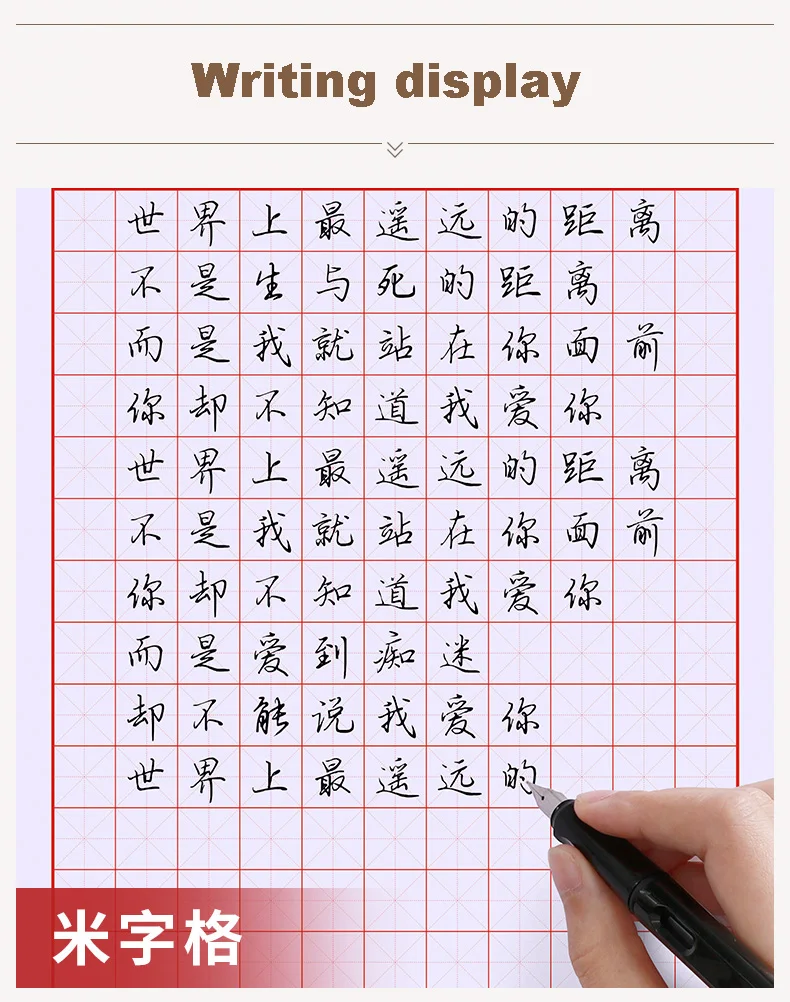 Writing display
世界上最遥远的距离
不是生与死的距离
而是我就站在你面前
你却不知道我爱你
世界上最遥远的距离
不是我就站在你面前
你却不知道我爱你
而是爱到痴迷
却不能说我爱你
世界上最遥远的
米字格